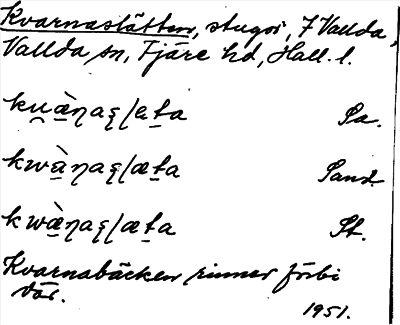 Kvarnaslätten, stugor, 7 Vallda,
Vallda sn, Fjäre hd, Hall. l.
ku̯æ̀ɳaʂʃæt̠a Sa.
kwæ̀ɳaʂʃæt̠a Sand.
kwæ̀ɳaʂʃæt̠a St.
Kvarnabäcken rinner förbi
där.
1951.